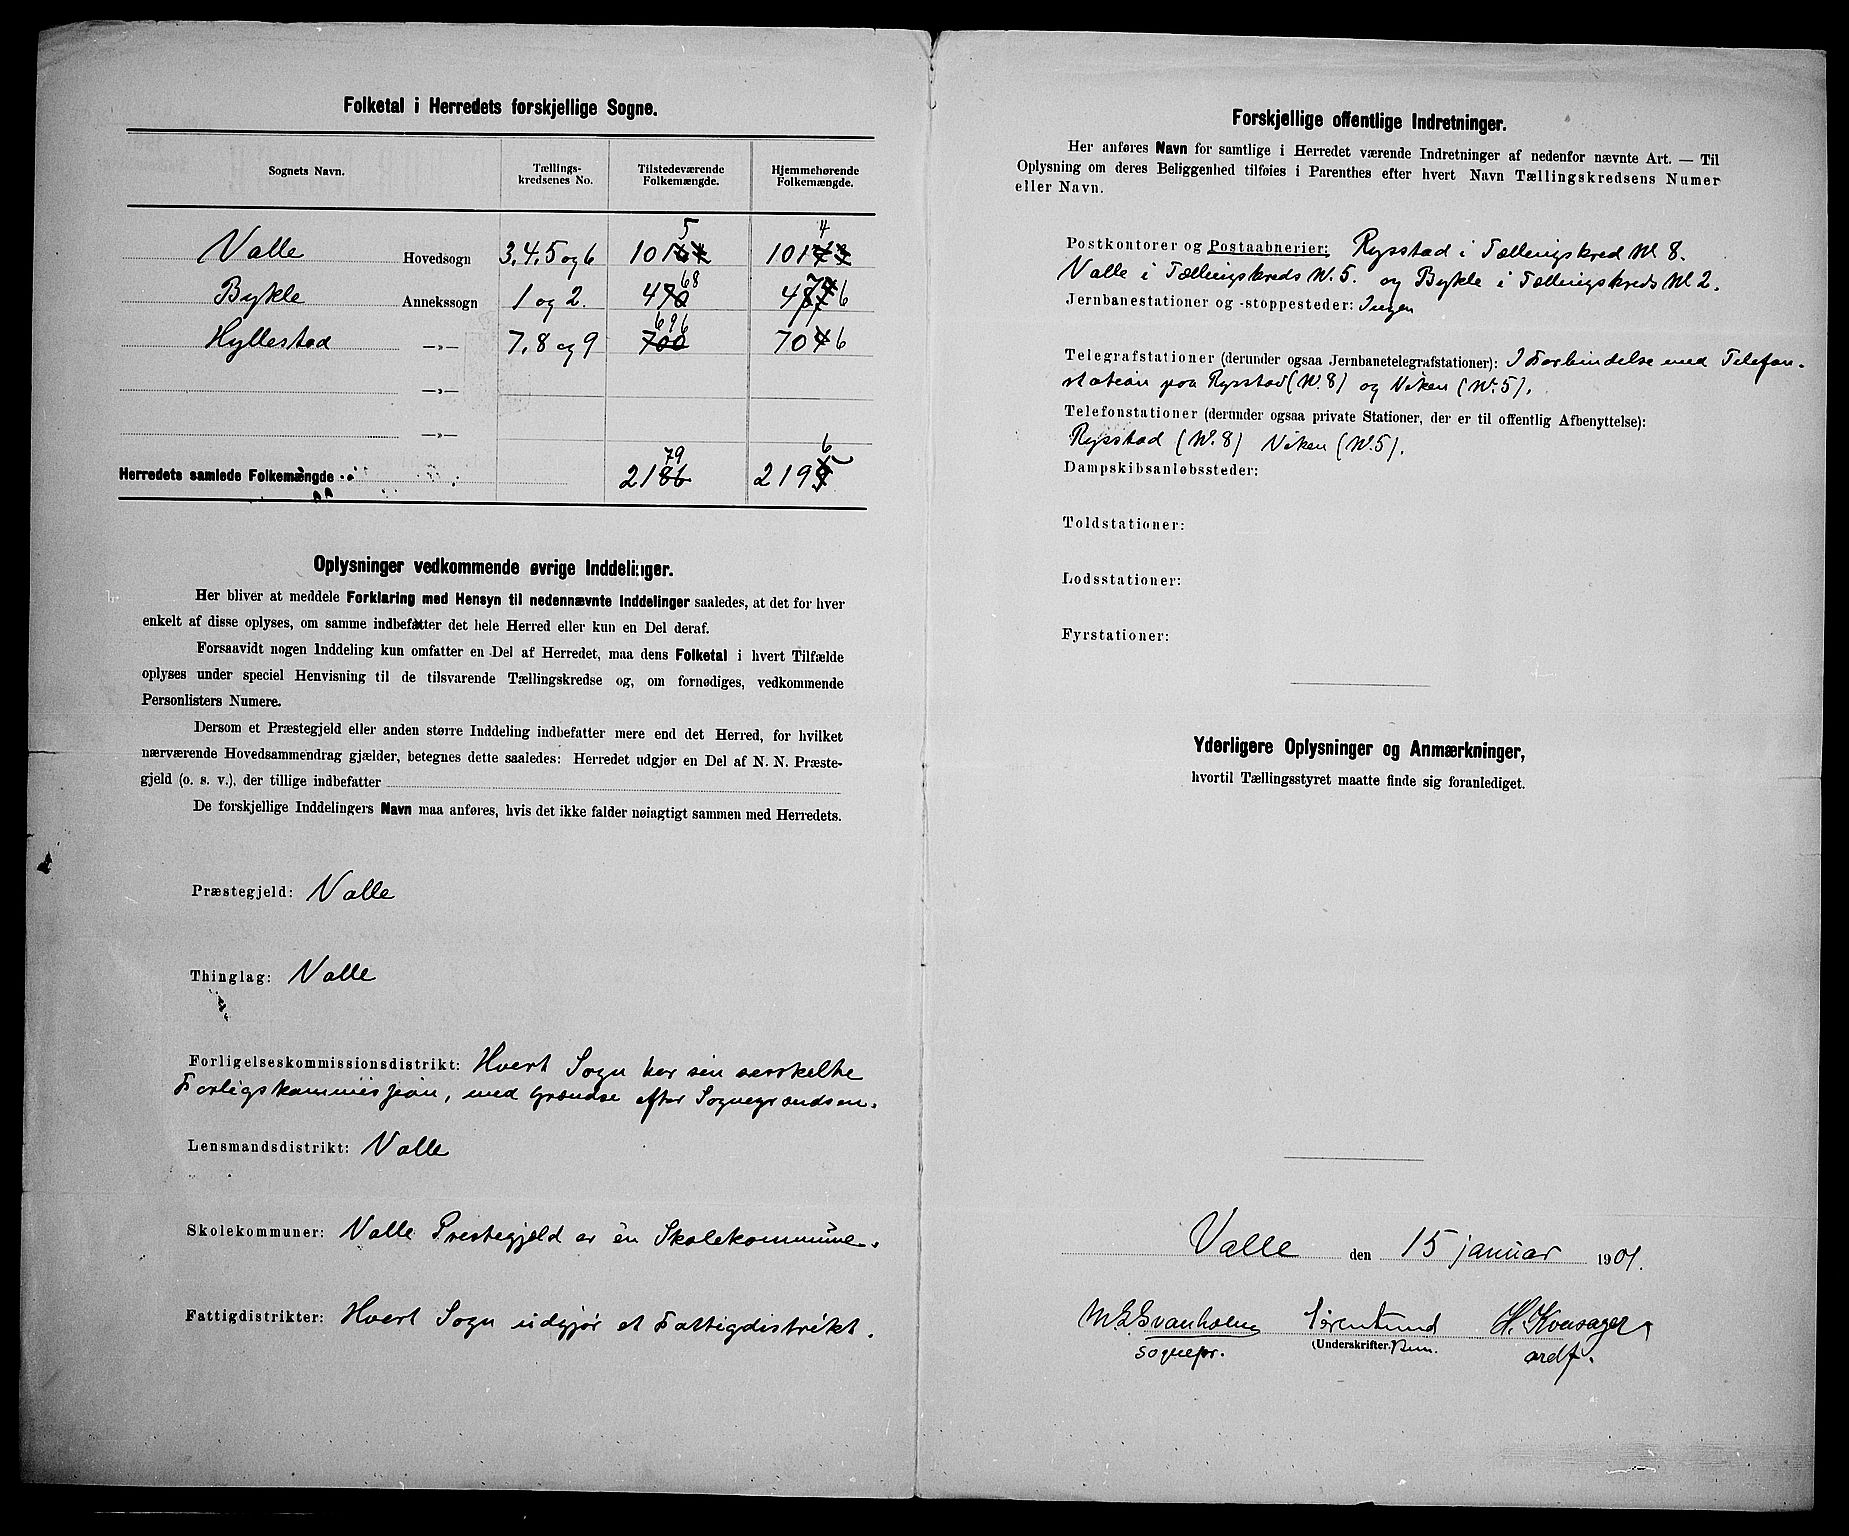 Folketal i Herredets forskjellige Sogne.
Sognets Navn.
Tællings-
kredsenes No.
Tilstedeværende
Folkemængde.
Hjemmehørende
Folkemængde.
5 4
Valle Hovedsogn 3.4.5 og 6 101 101
68
Bykle Annekssogn 1 og 2. 470 6
696
Hyllestad —„— 7.8 og 9 700 7046
—„—
—„—
79 6
Herredets samlede Folkemængde 2186 2195
Oplysninger vedkommende øvrige Inddelinger.
Her bliver at meddele Forklaring med Hensyn til nedennævnte Inddelinger saaledes, at det for hver
enkelt af disse oplyses, om samme indbefatter det hele Herred eller kun en Del deraf.
Forsaavidt nogen Inddeling kun omfatter en Del af Herredet, maa dens Folketal i hvert Tilfælde
oplyses under speciel Henvisning til de tilsvarende Tællingskredse og, om fornødiges, vedkommende
Personlisters Numere.
Dersom et Præstegjeld eller anden større Inddeling indbefatter mere end det Herred, for hvilket
nærværende Hovedsammendrag gjælder, betegnes dette saaledes: Herredet udgjør en Del af N. N. Præste-
gjeld (o. s. v.), der tillige indbefatter
De forskjellige Inddelingers Navn maa anføres, hvis det ikke falder nøiagtigt sammen med Herredets.
Præstegjeld: Valle
Thinglag: Valle
Forligelseskommissionsdistrikt: Hvert Sogn har sin særskilte
Forligskommissjon, med Grændse efter Sognegrændsen.
Lensmandsdistrikt: Valle
Skolekommuner: Valle Prestegjeld er én Skolekommune.
Fattigdistrikter: Hvert Sogn udgjør et Fattigdistrikt.
Forskjellige offentlige Indretninger.
Her anføres Navn for samtlige i Herredet værende Indretninger af nedenfor nævnte Art. — Til
Oplysning om deres Beliggenhed tilføies i Parenthes efter hvert Navn Tællingskredsens Numer
eller Navn.
Postkontorer og Postaabnerier: Rysstad i Tællingskred N. 8.
Valle i Tællingskreds N. 5. og Bykle i Tællingskreds N 2.
Jernbanestationer og -stoppesteder: Ingen
Telegrafstationer (derunder ogsaa Jernbanetelegrafstationer): I Forbindelse med Telefon-
station paa Rysstad (N. 8) og Viken (N. 5).
Telefonstationer (derunder ogsaa private Stationer, der er til offentlig Afbenyttelse):
Rysstad (N. 8) Viken (N. 5).
Dampskibsanløbssteder:
Toldstationer:
Lodsstationer:
Fyrstationer:
Yderligere Oplysninger og Anmærkninger,
hvortil Tællingsstyret maatte finde sig foranlediget.
Valle den 15 januar 1901.
Svanholm H. Kvasager
(Underskrifter.)
Sognepr. ordf.